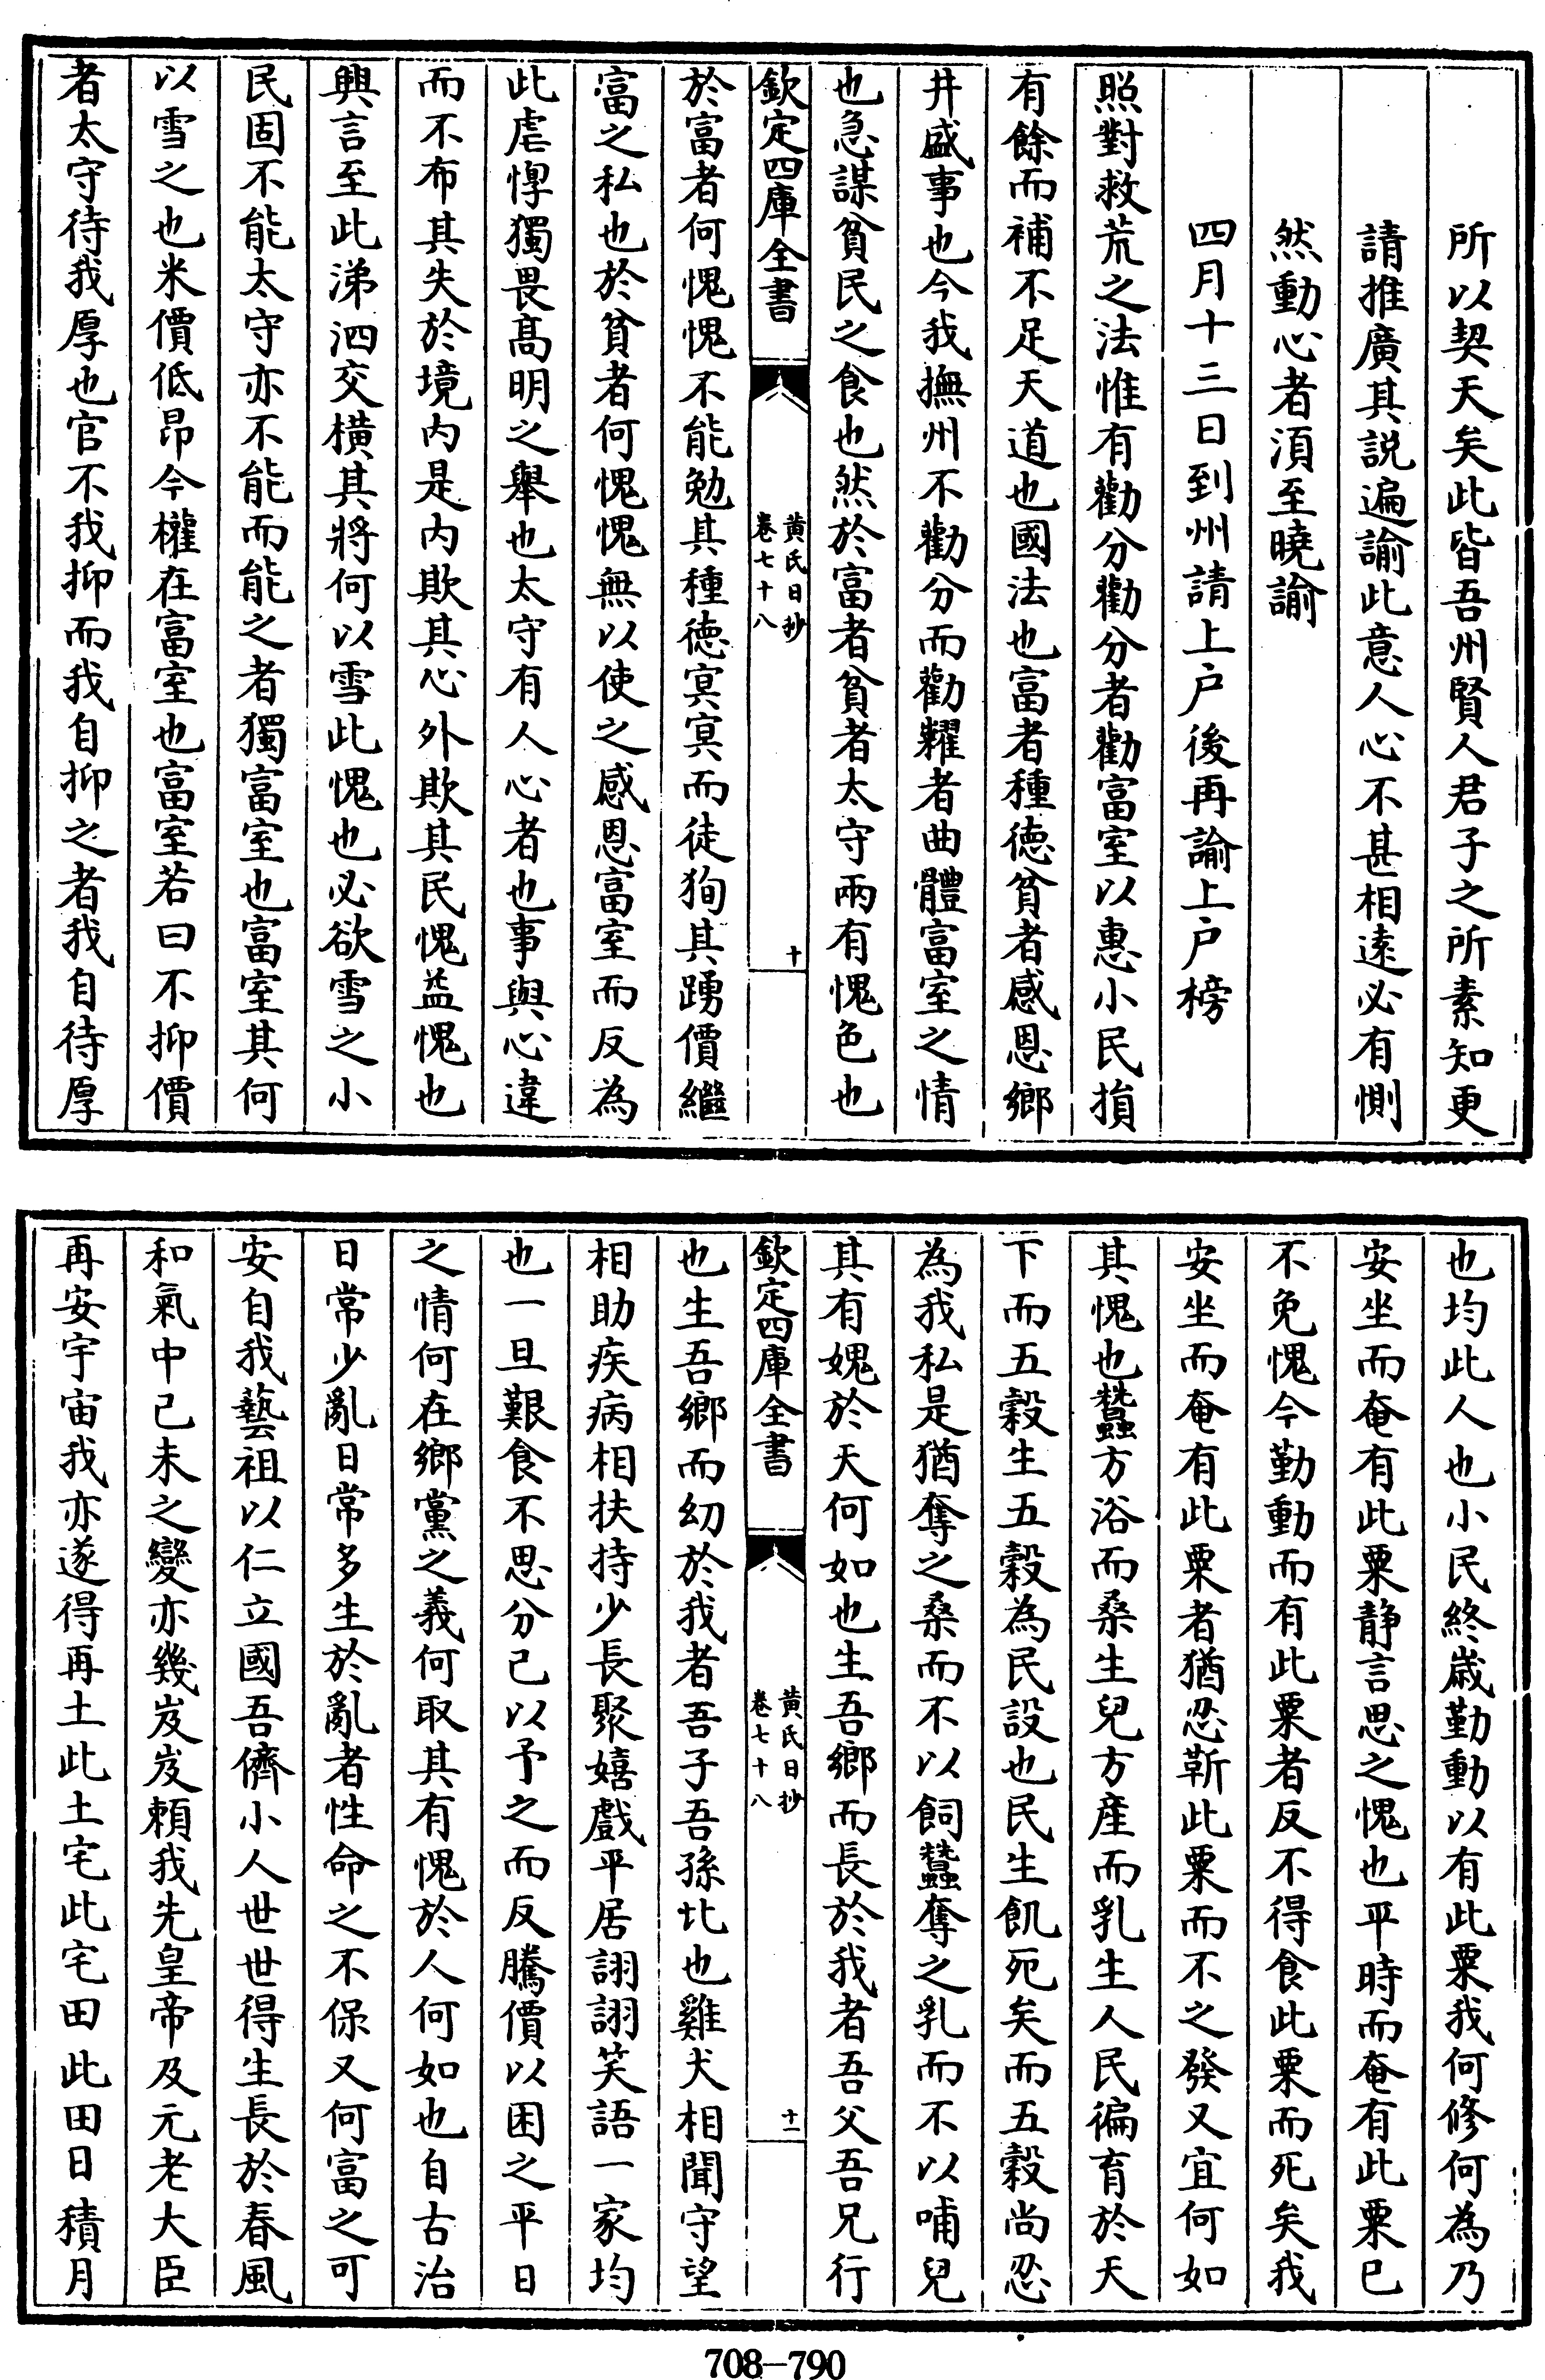 所以契天矣此皆吾州賢人君子之所素知更
請推廣其説遍諭此意人心不甚相逺必有惻
然動心者湏至曉諭
四月十三日到州請上户後再諭上户榜
照對救荒之法惟有勸分勸分者勸富室以惠小民損
有餘而補不足天道也國法也富者種德貧者感恩鄉
井盛事也今我撫州不勸分而勸糶者曲體富室之情
也急謀貧民之食也然於富者貧者太守兩有愧色也
欽定四庫全書
黄氏日抄
卷七十八
十
於富者何愧愧不能勉其種德冥冥而徒狥其踴價繼
富之私也於貧者何愧愧無以使之感恩富室而反為
此虐惸獨畏髙明之舉也太守有人心者也事與心違
而不布其失於境内是内欺其心外欺其民愧益愧也
興言至此涕泗交橫其將何以雪此愧也必欲雪之小
民固不能太守亦不能而能之者獨富室也富室其何
以雪之也米價低昂今權在富室也富室若曰不抑價
者太守待我厚也官不我抑而我自抑之者我自待厚
也均此人也小民終歲勤動以有此粟我何修何為乃
安坐而奄有此粟静言思之愧也平時而奄有此粟已
不免愧今勤動而有此粟者反不得食此粟而死矣我
安坐而奄有此粟者猶忍靳此粟而不之發又宜何如
其愧也蠶方浴而桑生兒方産而乳生人民徧育於天
下而五穀生五穀為民設也民生飢死矣而五穀尚忍
為我私是猶奪之桑而不以飼蠶奪之乳而不以哺兒
其有媿於天何如也生吾鄉而長於我者吾父吾兄行
欽定四庫全書
黄氏日抄
卷七十八
十一
也生吾鄉而幼於我者吾子吾孫比也雞犬相聞守望
相助疾病相扶持少長聚嬉戲平居詡詡笑語一家均
也一旦艱食不思分己以予之而反騰價以困之平日
之情何在鄉黨之義何取其有愧於人何如也自古治
日常少亂日常多生於亂者性命之不保又何富之可
安自我藝祖以仁立國吾儕小人世世得生長於春風
和氣中己未之變亦幾岌岌頼我先皇帝及元老大臣
再安宇宙我亦遂得再土此土宅此宅田此田日積月
708-790